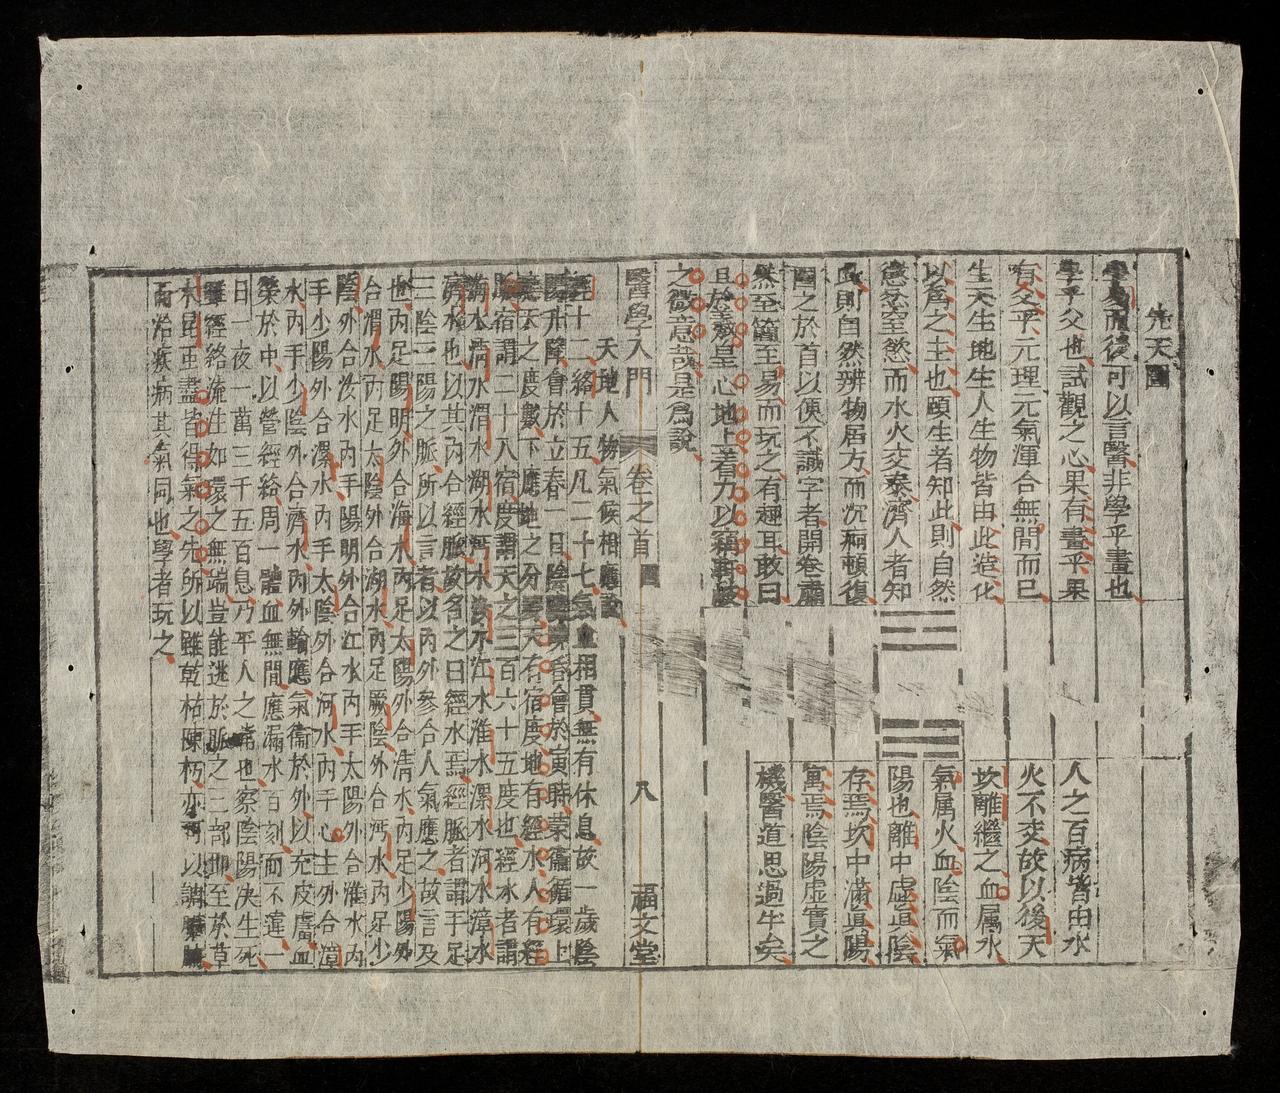 先天圖
學易而後可以言醫非學乎畫也
學乎爻也試觀之心果有畫乎果
有爻乎元理元氣渾合無間而已
生天生地生人生物皆由此造化
以爲之主也頤生者知此則自然
懲忿窒慾而水火交泰濟人者知
此則自然辨物居方而沉痾頓復
圖之於首以便不識字者開卷肅
然至簡至易而玩之有趣耳敢曰
且於羲皇心地上着力以竊軒岐
之微意哉是爲說
人之百病皆由水
火不交故以後天
坎離繼之血属水
氣属火血陰而氣
陽也離中虛眞陰
存焉坎中滿眞陽
寓焉陰陽虛實之
機醫道思過半矣
醫學入門 卷之首 圖 八 福文堂
天地人物氣候相應說
經十二絡十五凡二十七氣血相貫無有休息故一歲陰
陽升降會於立春一日陰陽昏曉會於寅時榮衞循環上
應天之度數下應地之分野天有宿度地有經水人有經
脉宿謂二十八宿度謂天之三百六十五度也經水者謂
海水清水渭水湖水沔水汝水江水淮水漯水河水漳水
濟水也以其内合經脈故名之曰經水焉經脈者謂手足
三陰三陽之脈所以言者以内外參合人氣應之故言及
也内足陽明外合海水内足太陽外合清水内足少陽外
合渭水内足太陰外合湖水内足厥陰外合沔水内足少
陰外合汝水内手陽明外合江水内手太陽外合淮水内
手少陽外合漯水内手太陰外合河水内手心主外合漳
水内手少陰外合濟水内外輸應氣衞於外以充皮膚血
榮於中以營經絡周一體血無間應漏水百刻而不違一
日一夜一萬三千五百息乃平人之常也察陰陽決生死
雖經絡流注如環之無端豈能逃於脈之三部耶至於草
木昆虫盡皆得氣之先所以雖乾枯陳朽亦可以調臟腑
而治疾病其氣同也學者玩之